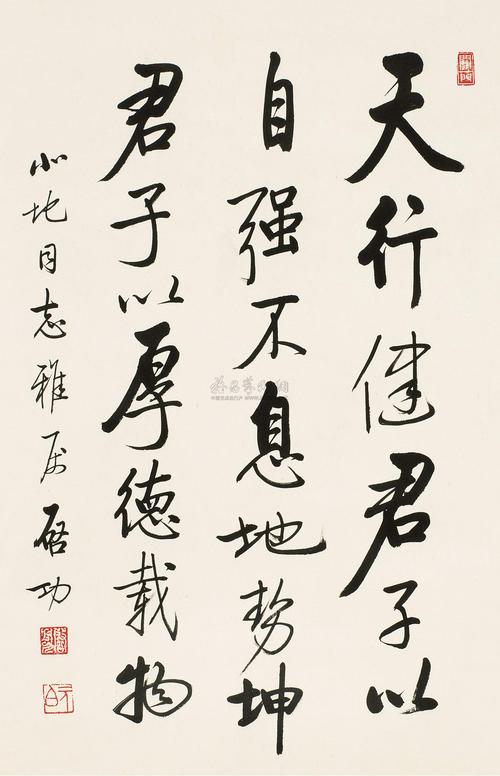 天行健君子以
自强不息地势坤
君子以厚德载物
小地同志雅属启功